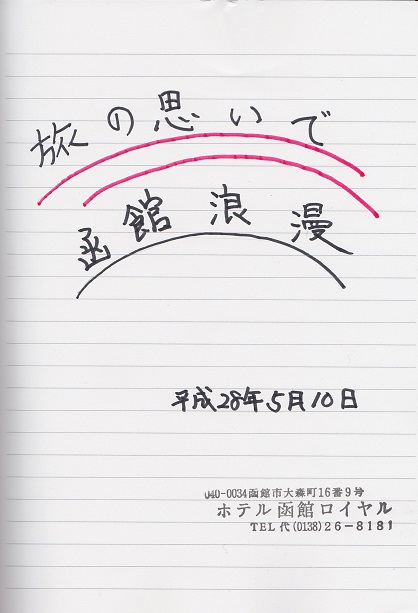 旅の思いで
函館浪漫
平成28年5月10日
040-0034函館市大森町16番9号
ホテル函館ロイヤル
TEL代(0138)26-8181